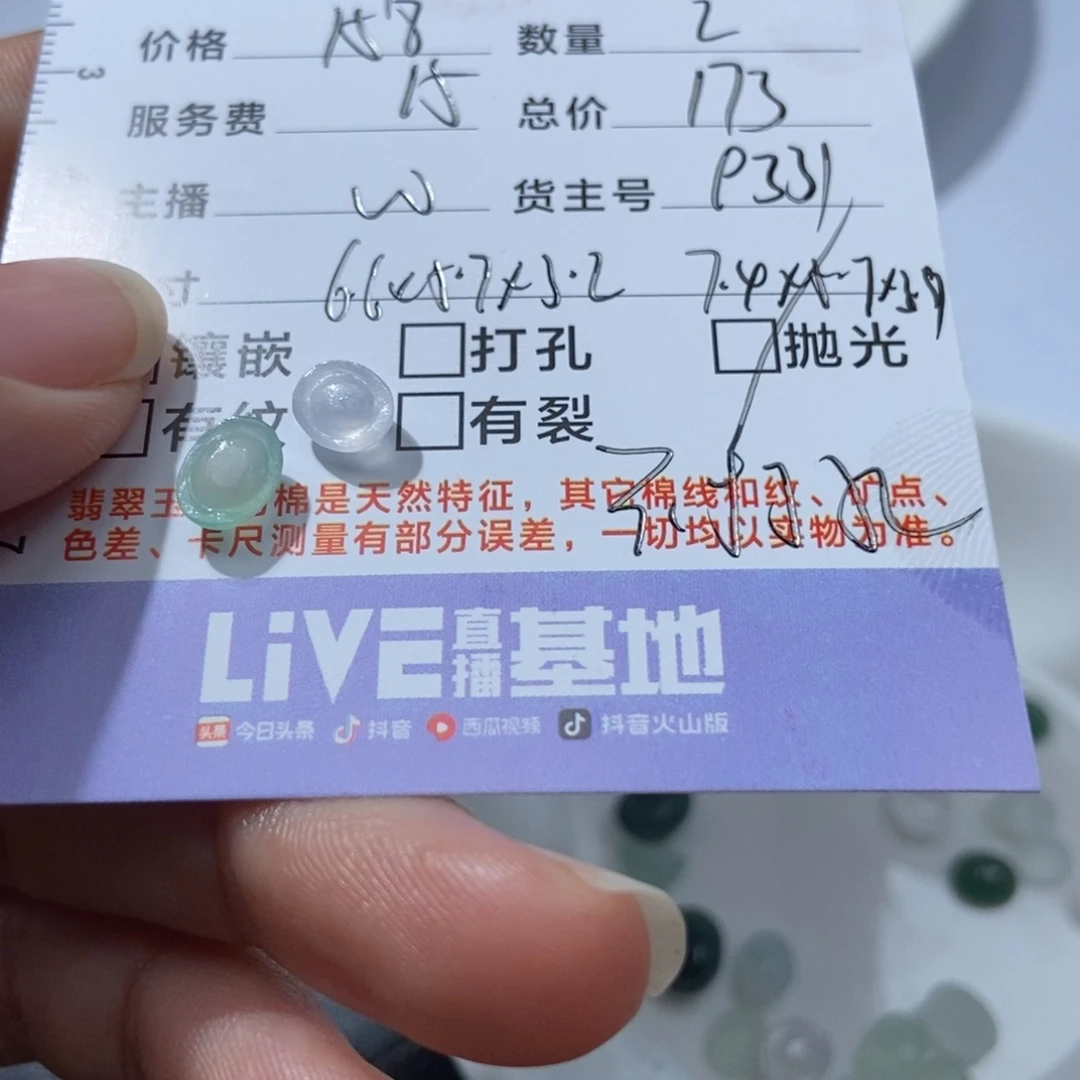 3
价格 158 数量 2
服务费 15 总价 173
主播 W 货主号 P331
寸 6.6x5.7x3.2 7.4x5.7x3.9
镶嵌 打孔 抛光
有纹 有裂
翡翠玉 棉是天然特征，其它棉线和纹、矿点、
色差、卡尺测量有部分误差，一切均以实物为准。
LiVE直播基地
头条 今日头条 抖音 西瓜视频 抖音火山版